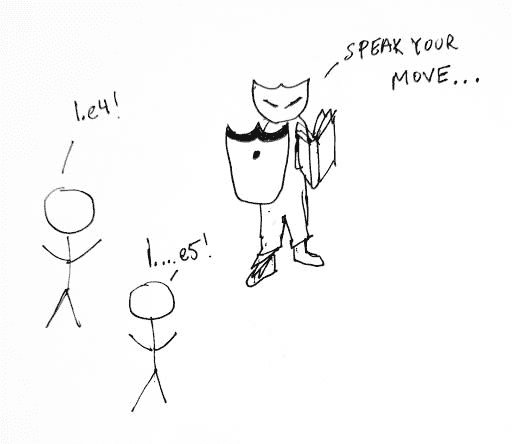 SPEAK YOUR
MOVE...
1.e4!
1....e5!